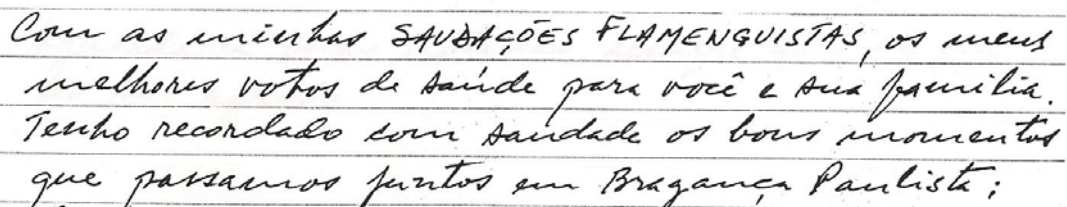 Com as minhas SAUDAÇÕES FLAMENGUISTAS, os meus
melhores votos de saúde para você e sua família.
Tenho recordado com saudade os bons momentos
que passamos juntos em Bragança Paulista;